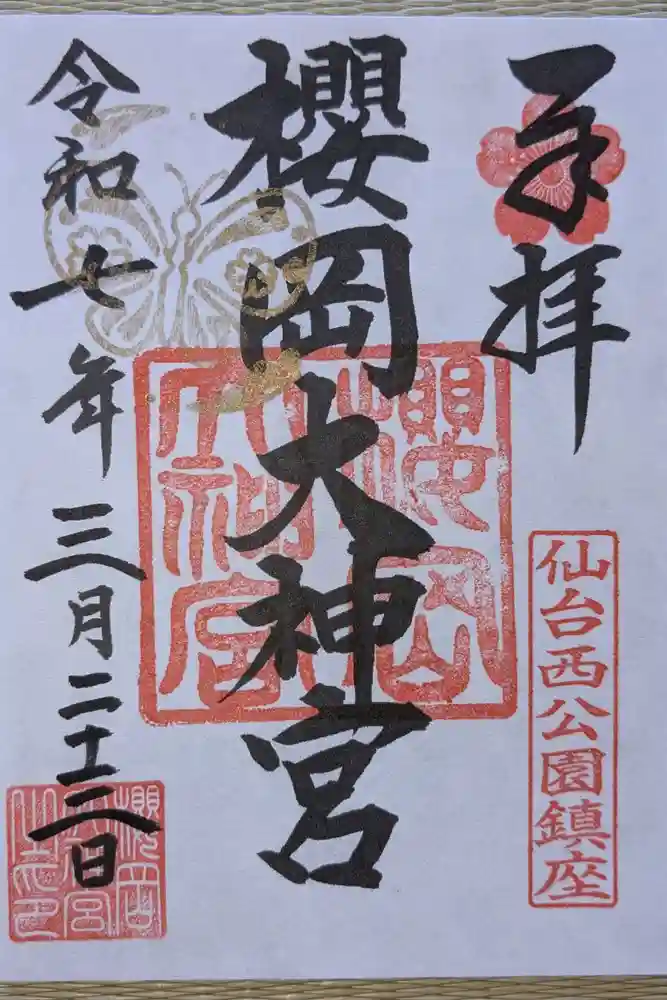 奉拝
仙台西公園鎮座
櫻岡大神宮
櫻岡大神宮
令和七年三月二十三日
櫻岡大神宮之印